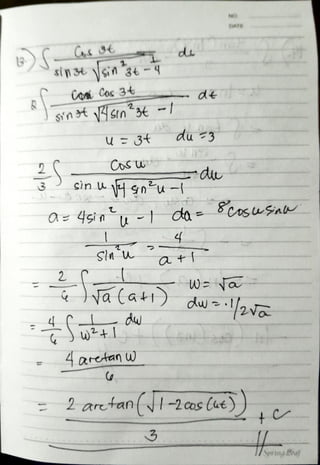 NO.
DATE
13.) ∫ Cos 3t / sin 3t √(sin² 3t - 1/4) dt
2 ∫ Cos 3t / sin 3t √(4 sin² 3t - 1) dt
u = 3t du = 3
2/3 ∫ Cos u / sin u √(4 sin² u - 1) du
a = 4 sin² u - 1 da = 8 cos u sin u
1 / sin² u = 4 / a + 1
= 2/6 ∫ 1 / √a (a+1) w = √a
dw = 1/2√a
= 4/6 ∫ 1 / w² + 1 dw
= 4 arctan w / 6
= 2 arctan (√1 - 2 cos (6t)) / 3 + C
Spring Leaf